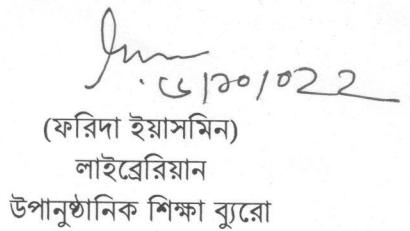 (ফরিদা ইয়াসমিন)
লাইব্রেরিয়ান
উপানুষ্ঠানিক শিক্ষা ব্যুরো